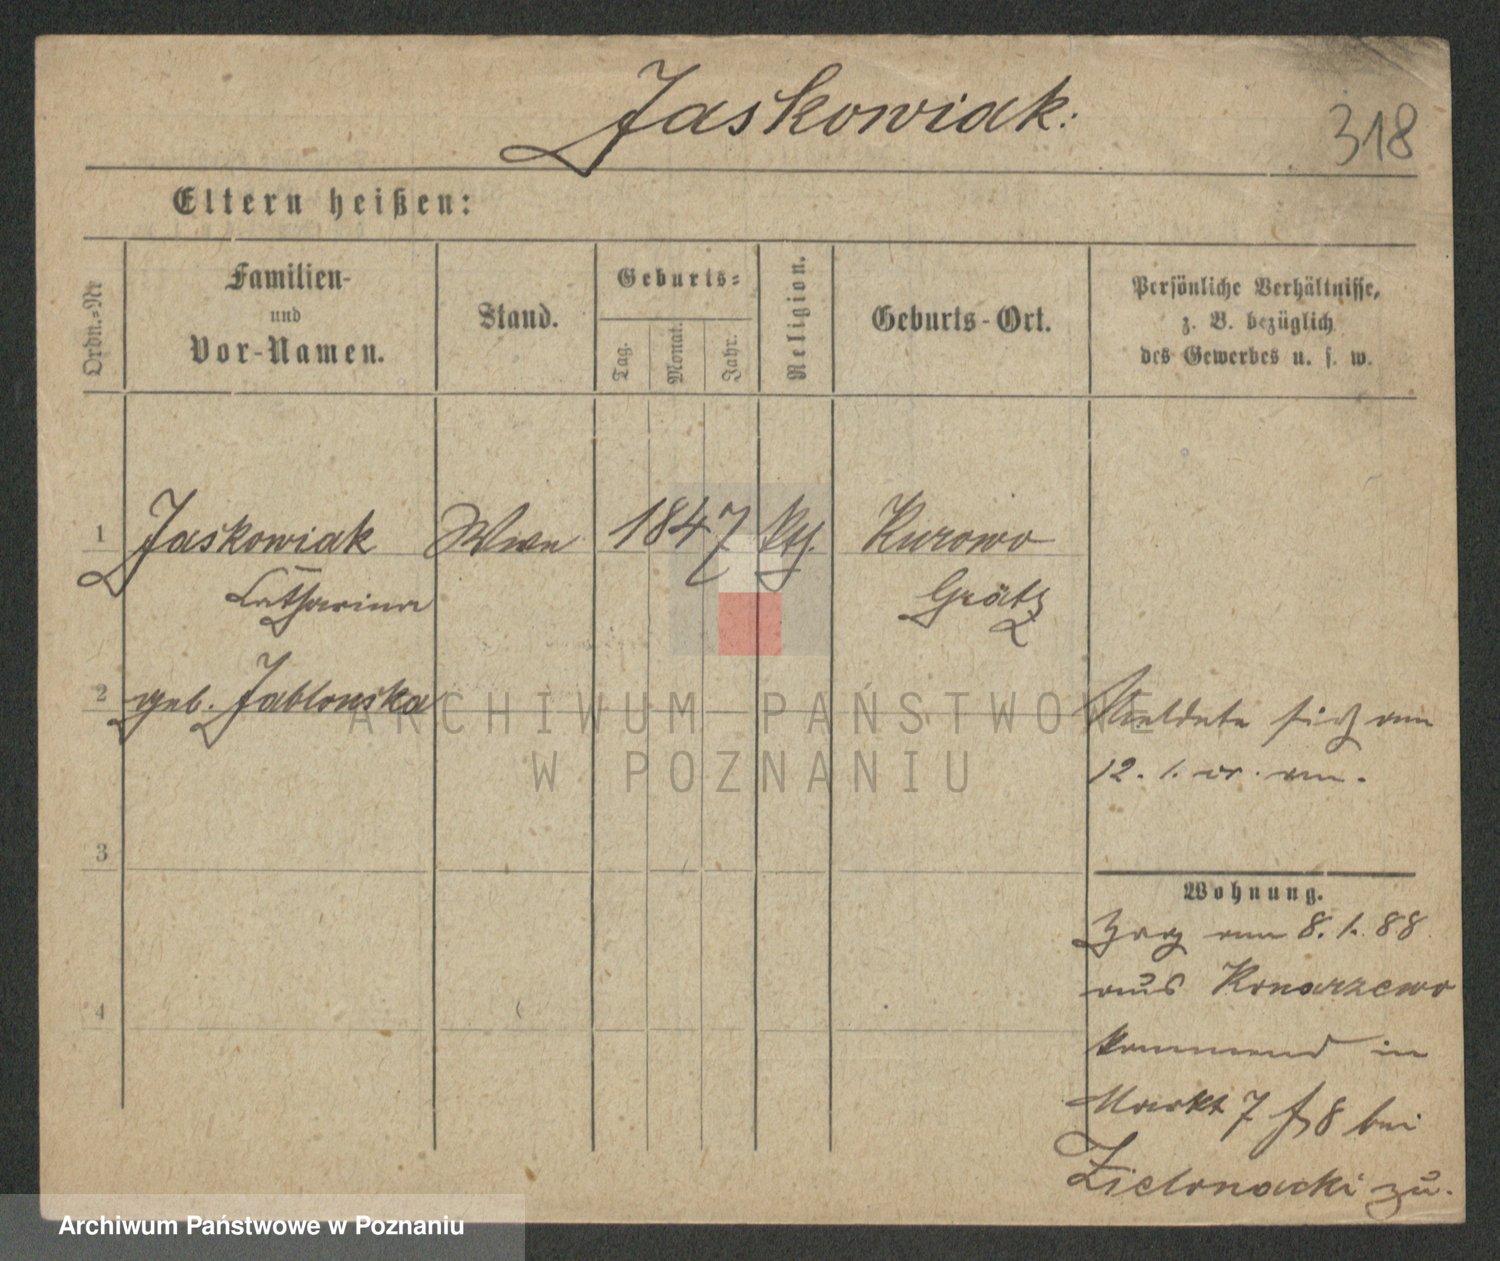 Jaskowiak:
318
Eltern heißen:
Ordn.-Nr
Familien-
und
Vor-Namen.
Stand.
Geburts-
Tag.
Monat.
Jahr.
Religion.
Geburts-Ort.
Persönliche Verhältnisse,
z. B. bezüglich
des Gewerbes u. s. w.
1 Jaskowiak Wwe 1847 Kth. Kurowo
Catharina Grätz
2 geb. Jablonska
Meldete sich am
12. 1. cr. an.
3
Wohnung.
Zog am 8. 1. 88
aus Konarzewo
4
kommend in
Markt 7/8 bei
Zielonacki zu.
ARCHIWUM PAŃSTWOWE
W POZNANIU
Archiwum Państwowe w Poznaniu